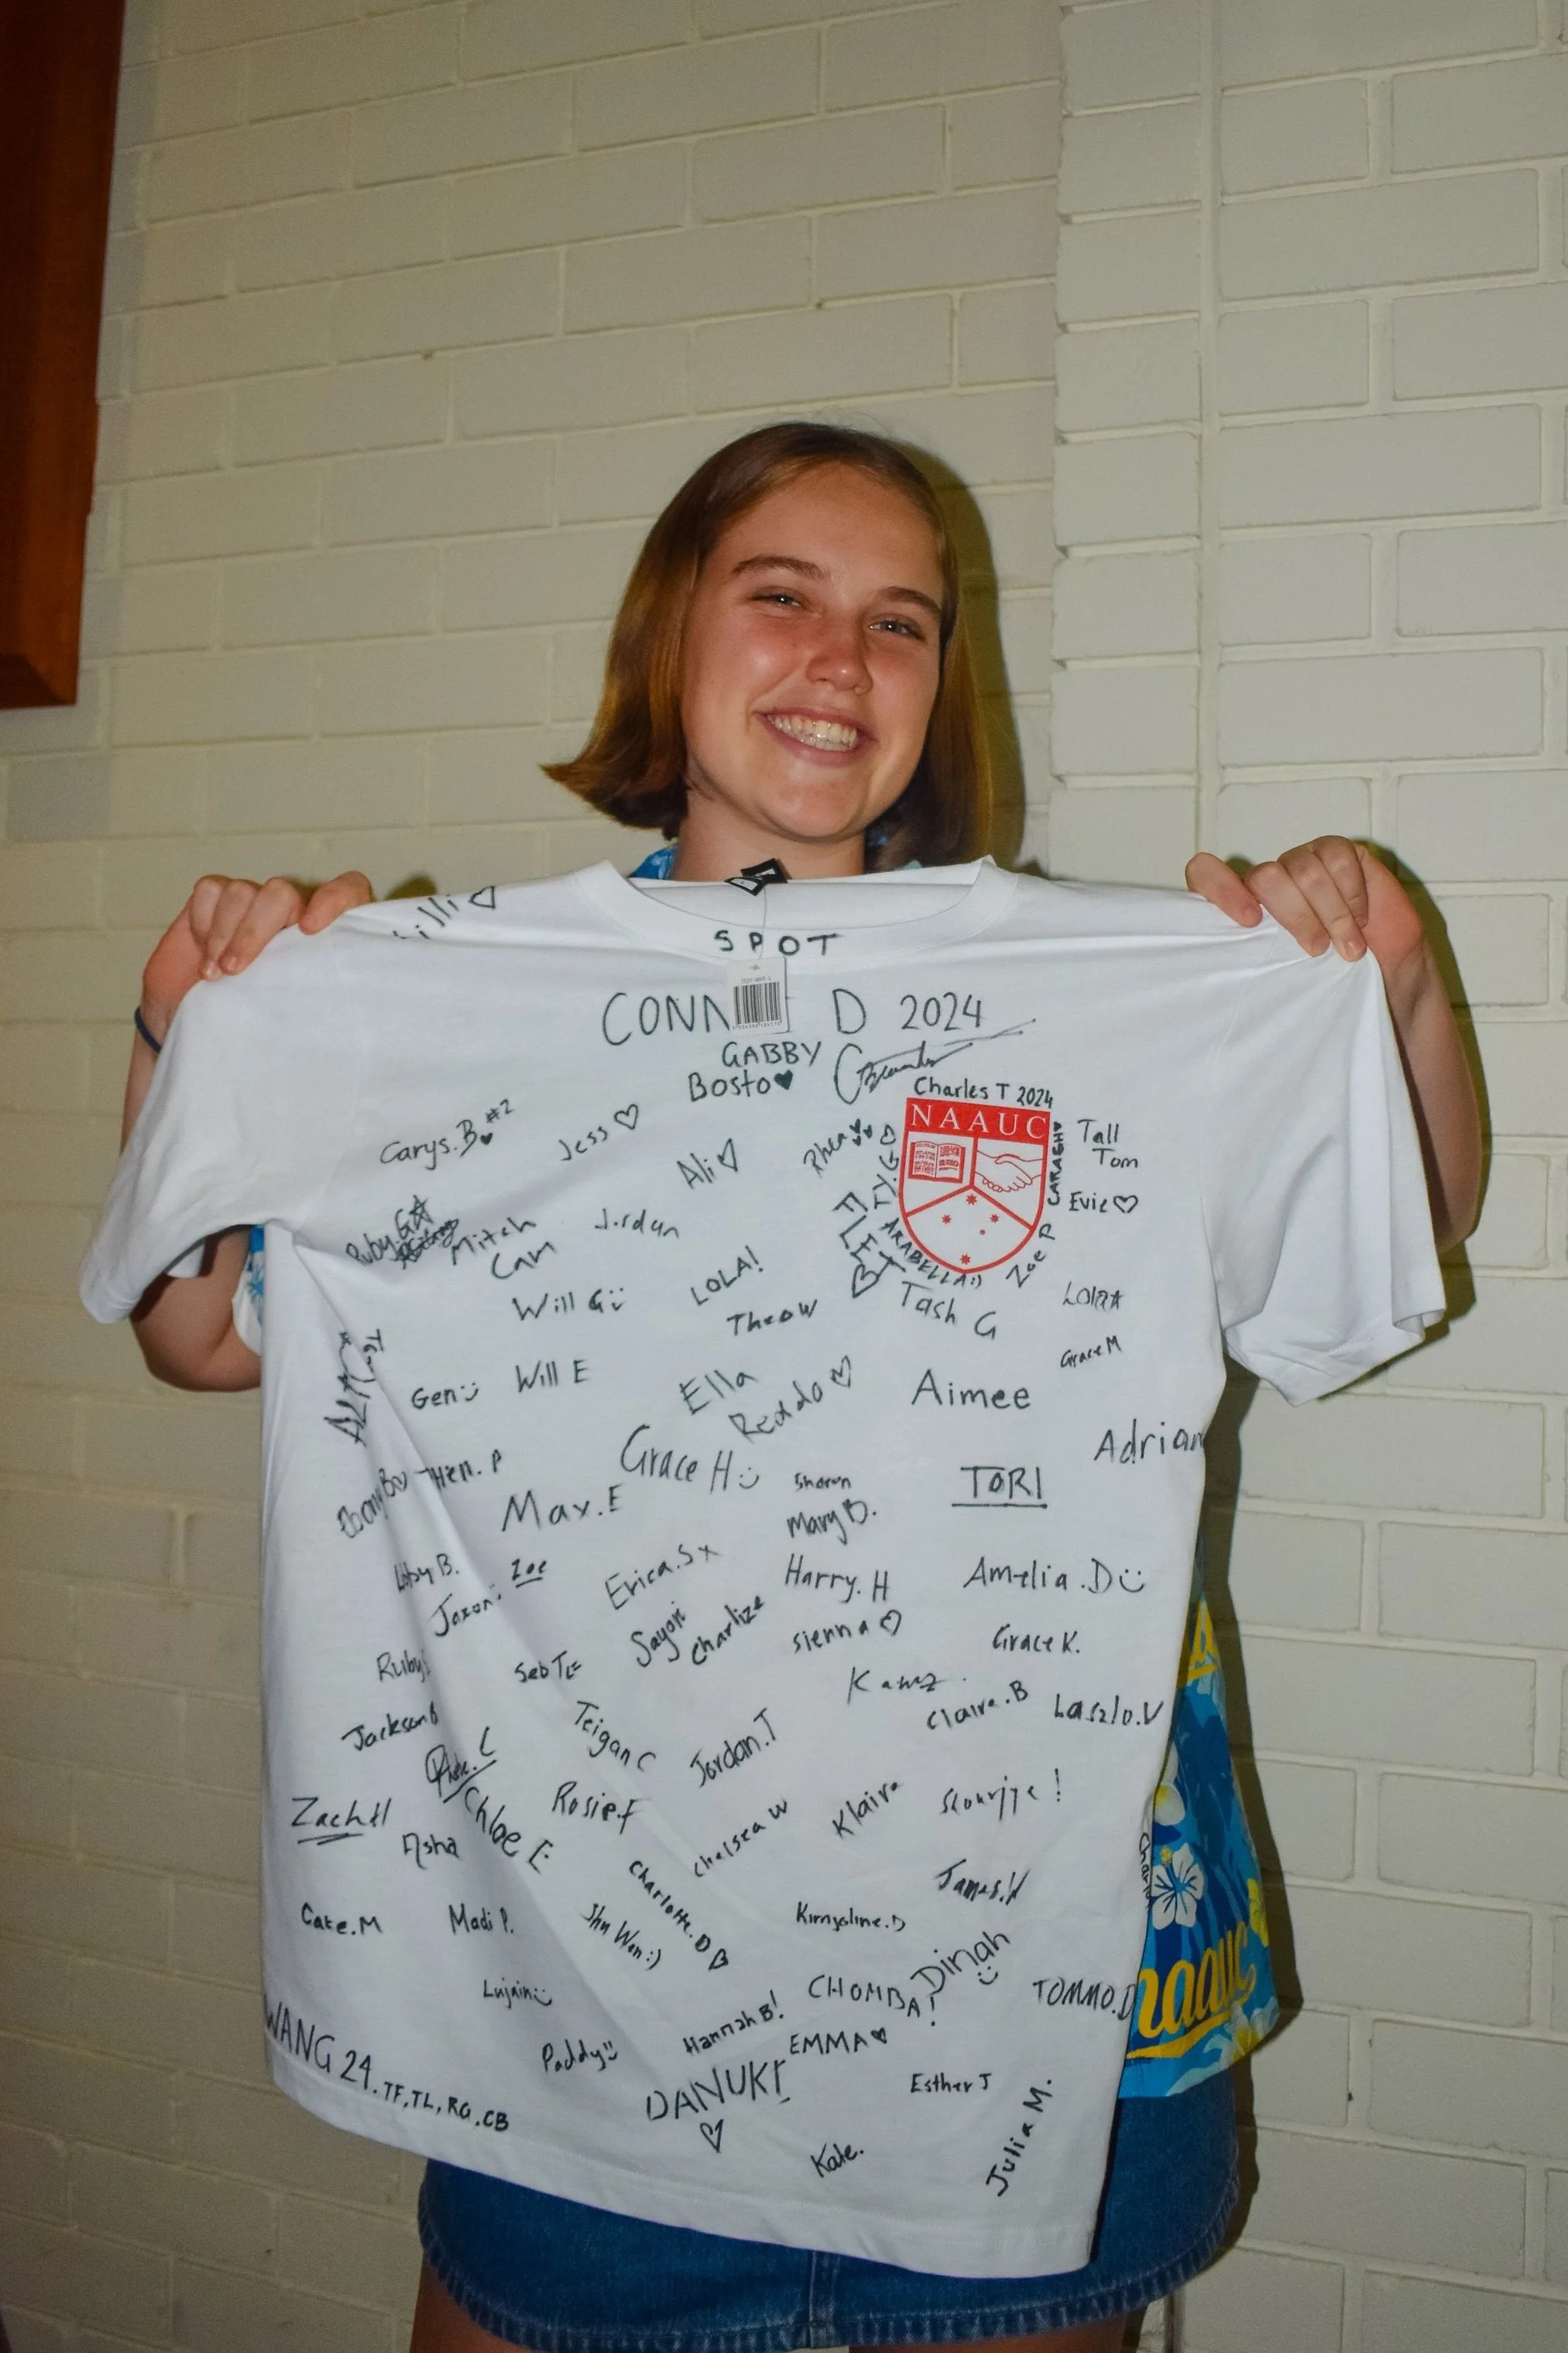 SPOT
D 2024
GABBY
Bosto
Charles T 2024
NAAUC
Carys.B #2
Jess
Ali
Rhea
TY.G
CARAGH
Tall
Tom
Evie
FLET
ARABELLA:)
Zoe P
Ruby G
Mitch
Cam
Jordan
Will G
LOLA!
Theow
Tash G
Lola
Grace M
Gen
Will E
Ella
Reddo
Aimee
Adrian
Ebony B
Hen. P
Max.E
Grace H
Sharon
Mary B.
TORI
Jaxon
Zoe
Erica.S x
Harry. H
Amelia.D
Sayori
Charlize
Sienna
Grace K.
Ruby
Seb TL
Kamz
Claire.B
Laszlo.V
Jackson B
Teigan C
Jordan.T
Zach H
Asha
Chloe E
Rosie.F
Chelsea W
Klaira
Charlotte.D
James.H
Cate.M
Madi P.
Shu Wen:)
Kimyaline.D
Dinah
Lujain
Hannah B!
CHOMBA!
TOMMO.D
WANG 24. TF, TL, RG, CB
Paddy
EMMA
DANUKI
Esther J
Kate.
Julia M.
naauc